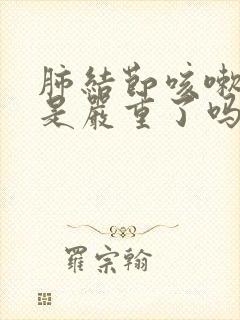 肺結節咳嗽
是嚴重了吗
羅宗翰